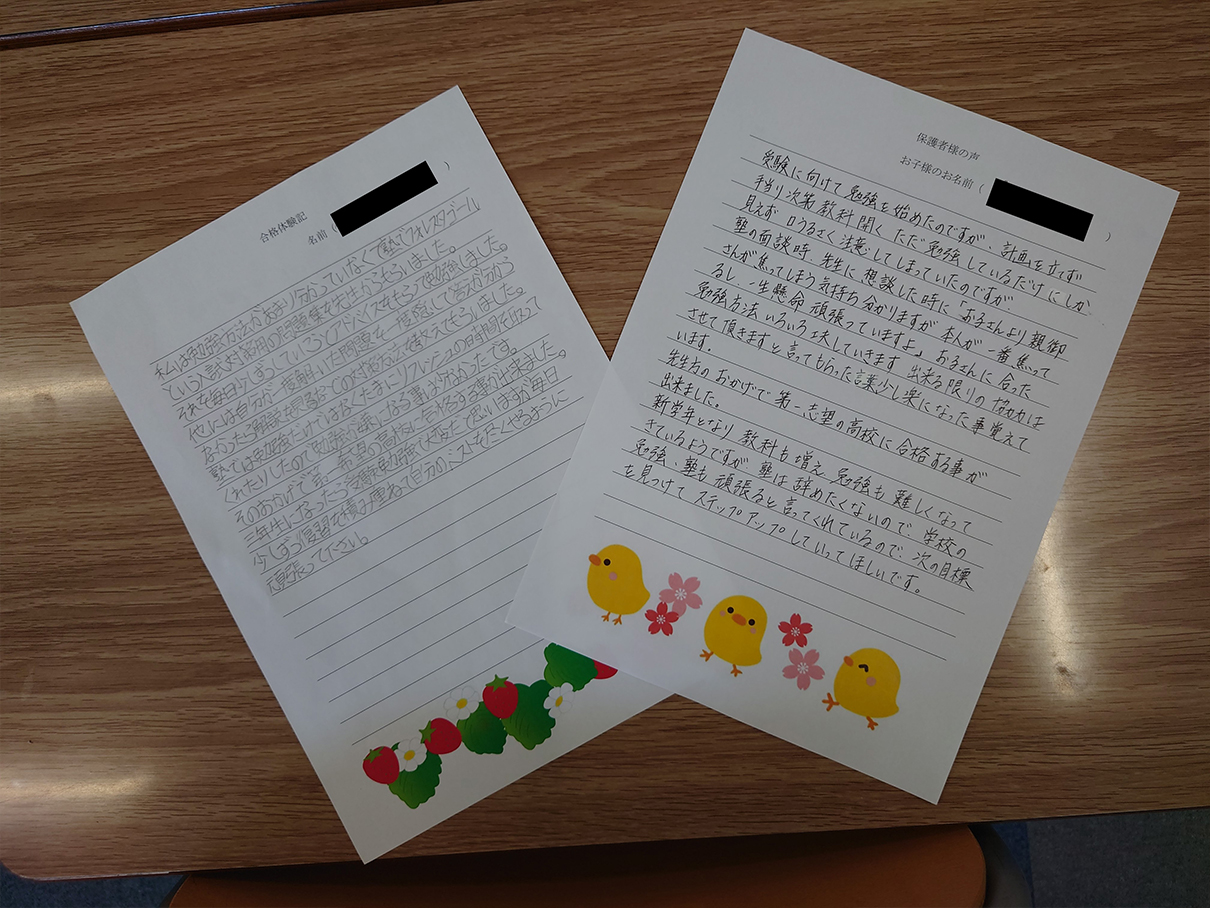 合格体験記
名前（　）
私は勉強方法があまり分かっていなくて塾でフォレスタゴール
という入試対策用の問題集を先生からもらいました。
それを毎日少しずつしていろいろアドバイスをもらって勉強しました。
他には自分が理解しにくい問題を一度隠して答えが分か
なかったら解説を見る。
塾では勉強だけではなくたまにリフレッシュの時間を取って
くれたりしたので勉強が嫌になる事が少なかったです。
そのおかげで第一希望の高校に合格する事が出来ました。
三年生になったら受験勉強は大変だと思いますが毎日
少しずつ復習を積み重ねて自分のベストをつくせるように
頑張って下さい。
保護者様の声
お子様のお名前（　）
受験に向けて勉強を始めたのですが、計画を立てず
手当り次第教科開く ただ勉強しているだけにしか
見えず 口うるさく注意してしまっていたのですが、
塾の面談時、先生に相談した時に「お子さんより親御
さんが焦ってしまう気持ち分かりますが本人が一番焦って
るし、一生懸命頑張っていますよ」お子さんに合った
勉強方法いろいろ工夫していきます 出来る限りの協力は
させて頂きますと言ってもらった言葉少し楽になった事覚えて
います。
先生方のおかげで第一志望の高校に合格する事が
出来ました。
新学年となり 教科も増え 勉強も難しくなって
きているようですが、塾は辞めたくないので、学校の
勉強、塾も頑張ると言ってくれているので、次の目標
を見つけて ステップアップしていってほしいです。